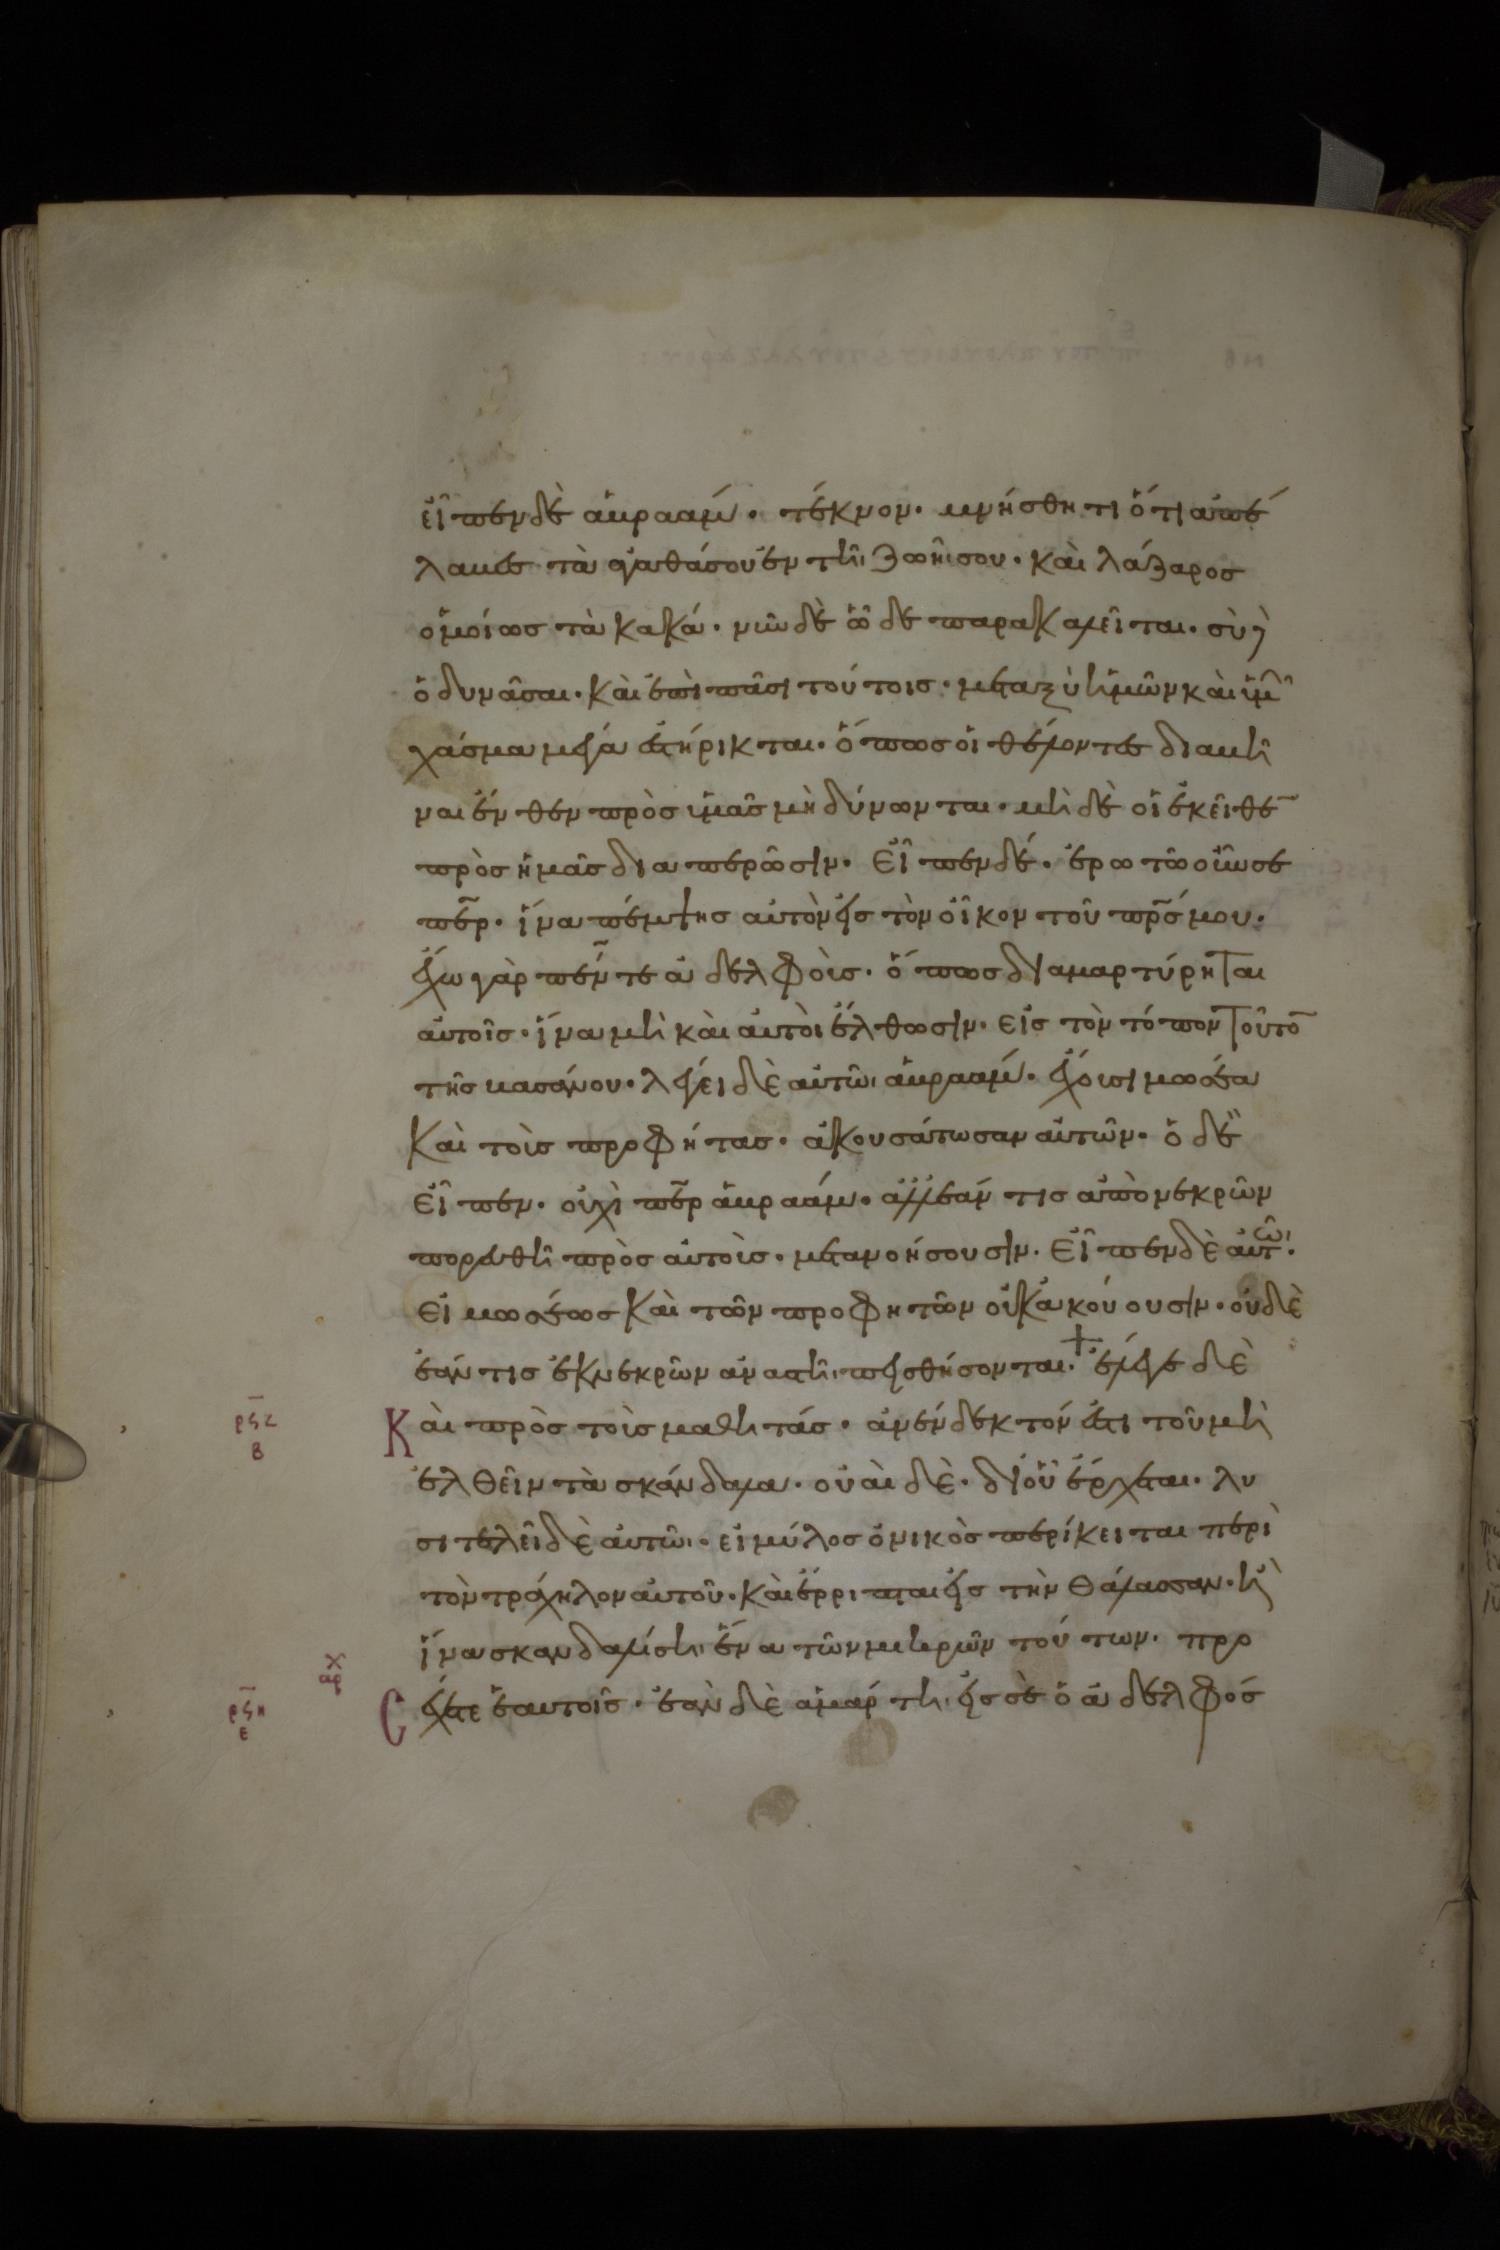 εἶπεν δὲ ἀβραάμ· τέκνον· μνήσθητι ὅτι ἀπέ
λαβες τὰ ἀγαθά σου ἐν τῆι ζωῆι σου· καὶ λάζαρος
ὁμοίως τὰ κακά· νῦν δὲ ὧδε παρακαλεῖται· σὺ δὲ
ὀδυνᾶσαι· καὶ ἐπὶ πᾶσι τούτοις· μεταξὺ ἡμῶν καὶ ὑμῶ
χάσμα μέγα ἐστήρικται· ὅπως οἱ θέλοντες διαβῆ
ναι ἔνθεν πρὸς ὑμᾶς μὴ δύνωνται· μὴ δὲ οἱ ἐκεῖθε
πρὸς ἡμᾶς διαπερῶσιν· Εἶπεν δέ· ἐρωτῶ οὖν σε
περ· ἵνα πέμψης αὐτὸν εἰς τὸν οἶκον τοῦ πρσ μου·
ἔχω γὰρ πέντε ἀδελφοὺς· ὅπως διαμαρτύρηται
αὐτοῖς· ἵνα μὴ καὶ αὐτοὶ ἔλθωσιν· εἰς τὸν τόπον τοῦτο
τῆς βασάνου· λέγει δὲ αὐτῶι ἀβραάμ· ἔχουσι μωσέα
καὶ τοὺς προφήτας· ἀκουσάτωσαν αὐτῶν· ὁ δὲ
Εἶπεν· οὐχὶ περ ἀβραάμ· ἀλλ' ἐάν τις ἀπὸ νεκρῶν
πορευθῆ πρὸς αὐτοὺς· μετανοήσουσιν· Εἶπεν δὲ αὐτῶι·
Εἰ μωσέως καὶ τῶν προφητῶν οὐκ ἀκούουσιν· οὐδὲ
ἐάν τις ἐκ νεκρῶν ἀναστῆι, πεισθήσονται·+ ἔλεγε δὲ
Καὶ πρὸς τοὺς μαθητάς· ἀνένδεκτόν ἐστι τοῦ μὴ
ἐλθεῖν τὰ σκάνδαλα· οὐαὶ δὲ· δι' οὗ ἔρχεται· λυ
σιτελεῖ δὲ αὐτῶι· εἰ μύλος ὀνικὸς περίκειται περὶ
τὸν τράχηλον αὐτοῦ· καὶ ἔρριπται εἰς τὴν θάλασσαν· ἢ
ἵνα σκανδαλίσηι ἕνα τῶν μικρῶν τούτων· προ
Σέχετε ἑαυτοῖς· ἐὰν δὲ ἁμάρτηι εἰς σὲ ὁ ἀδελφός
ρϟζ
β
αρχ
ρϟη
ε